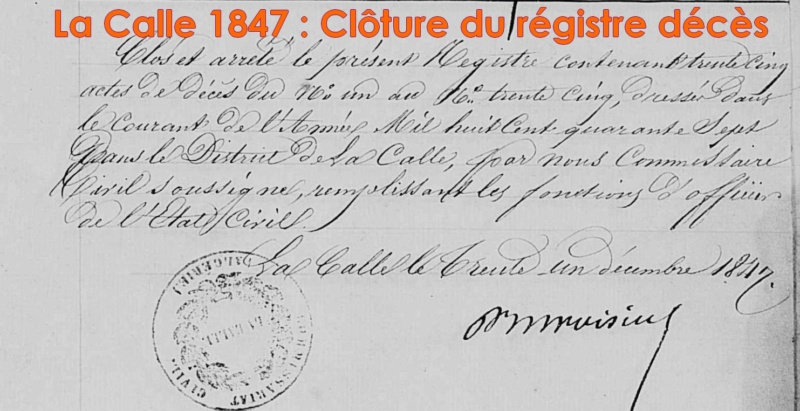 La Calle 1847 : Clôture du régistre décès
Clos et arrêté le présent Registre contenant trente cinq
actes de décès du No. un au No. trente cinq, dressés dans
le courant de l'Année Mil huit Cent quarante Sept
Dans le District de La Calle, par nous Commissaire
Civil soussigné, remplissant les fonctions d'officier
de l'Etat Civil.
La Calle le Trente un décembre 1847.
COMMISSARIAT CIVIL.
(ALGERIE.)
LA CALLE